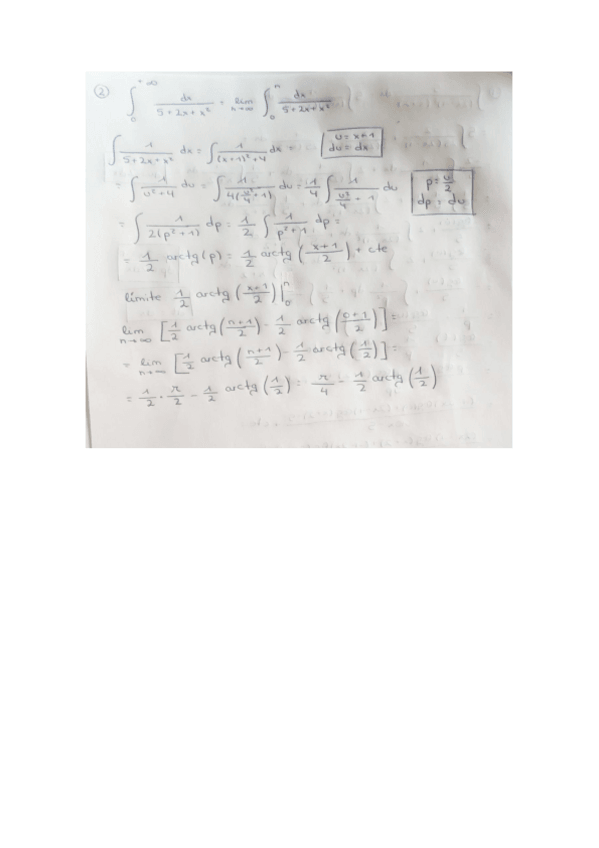 ② ∫₀^{+∞} dx / (5+2x+x²) = lim_{n→∞} ∫₀^n dx / (5+2x+x²)
∫ 1/(5+2x+x²) dx = ∫ 1/((x+1)²+4) dx = u = x+1 du = dx
= ∫ 1/(u²+4) du = ∫ 1/(4(u²/4+1)) du = 1/4 ∫ 1/(u²/4+1) du p = u/2 dp = du
= ∫ 1/(2(p²+1)) dp = 1/2 ∫ 1/(p²+1) dp =
= 1/2 arctg(p) = 1/2 arctg((x+1)/2) + cte
límite 1/2 arctg((x+1)/2)|₀^n
lim_{n→∞} [1/2 arctg((n+1)/2) - 1/2 arctg((0+1)/2)] =
= lim_{n→∞} [1/2 arctg((n+1)/2) - 1/2 arctg(1/2)] =
= 1/2 · π/2 - 1/2 arctg(1/2) = π/4 - 1/2 arctg(1/2)